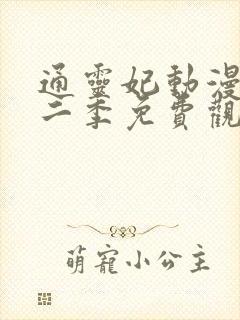 通靈妃動漫
二季免費觀
萌寵小公主